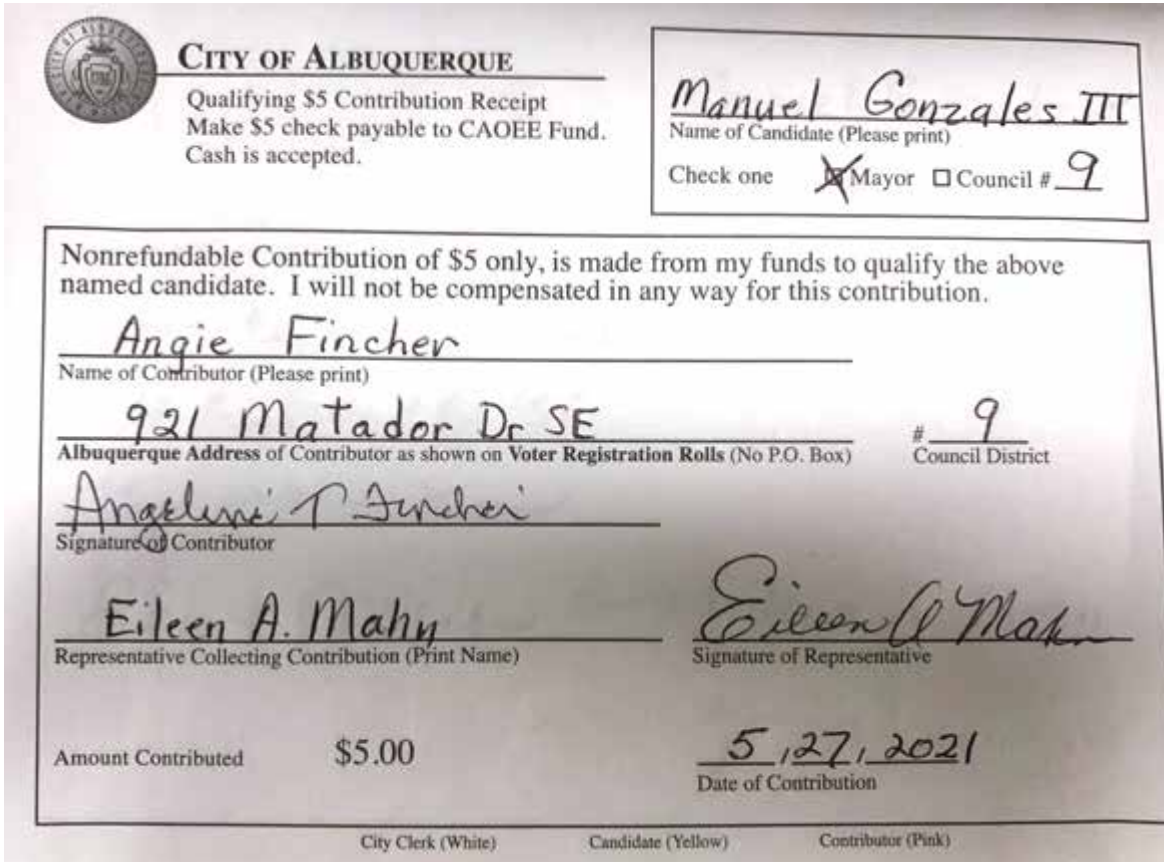 CITY OF ALBUQUERQUE
Qualifying $5 Contribution Receipt
Make $5 check payable to CAOEE Fund.
Cash is accepted.
Manuel Gonzales III
Name of Candidate (Please print)
Check one Mayor Council # 9
Nonrefundable Contribution of $5 only, is made from my funds to qualify the above
named candidate. I will not be compensated in any way for this contribution.
Angie Fincher
Name of Contributor (Please print)
921 Matador Dr SE # 9
Albuquerque Address of Contributor as shown on Voter Registration Rolls (No P.O. Box) Council District
Angeline T Fincher
Signature of Contributor
Eileen A. Mahn Eileen A Mahn
Representative Collecting Contribution (Print Name) Signature of Representative
Amount Contributed $5.00 5,27,2021
Date of Contribution
City Clerk (White) Candidate (Yellow) Contributor (Pink)